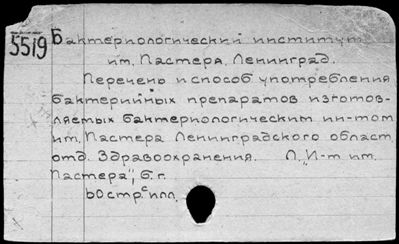 5519
Бактериологический институт
им. Пастера. Ленинград.
Перечень и способ употребления
бактерийных препаратов изготов-
ляемых бактериологическим ин-том
им. Пастера Ленинградского област.
отд. Здравоохранения. Л. "И-т им.
Пастера", б. г.
60 стр. с илл.